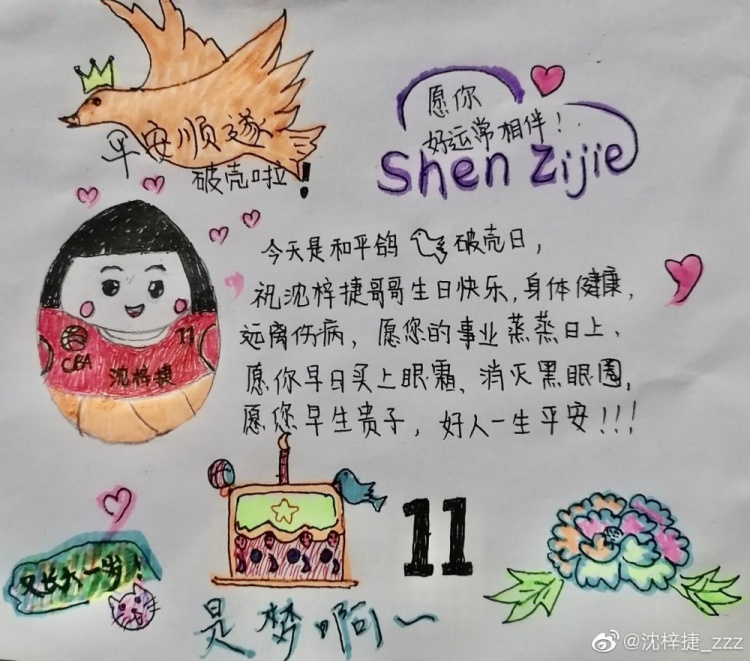 平安顺遂
破壳啦!
愿你
好运常相伴!
Shen Zijie
今天是和平鸽破壳日,
祝沈梓捷哥哥生日快乐,身体健康,
远离伤病,愿您的事业蒸蒸日上、
愿你早日买上眼霜、消灭黑眼圈,
愿您早生贵子,好人一生平安!!!
CBA
11
沈梓捷
11
又长大一步!
是梦啊~
@沈梓捷_zzz